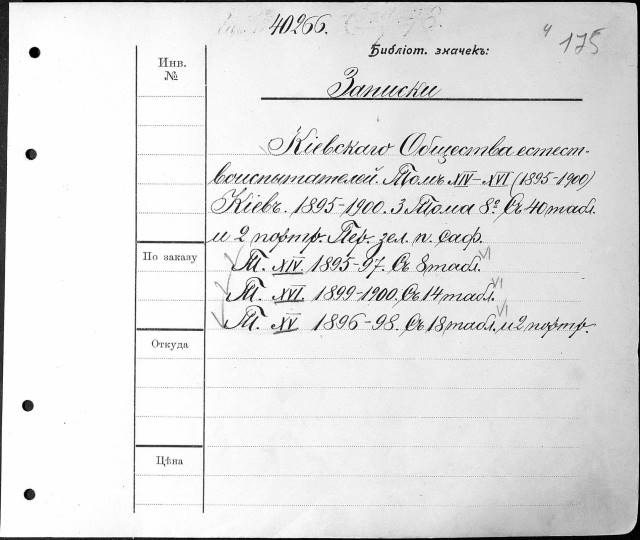 40266.
175
Библіот. значекъ:
Инв.
№
Записки
Кіевскаго Общества естест-
воиспытателей. Томъ XIV–XVI (1895-1900)
Кіевъ. 1895-1900. 3 Тома 8º. Съ 40 табл.
и 2 портр. Пер. зел. п. саф.
По заказу
Т. XIV. 1895-97. Съ 8 табл. VI
Т. XVI. 1899-1900. Съ 14 табл. VI
Т. XV 1896-98. Съ 18 табл. и 2 портр. VI
Откуда
Цѣна